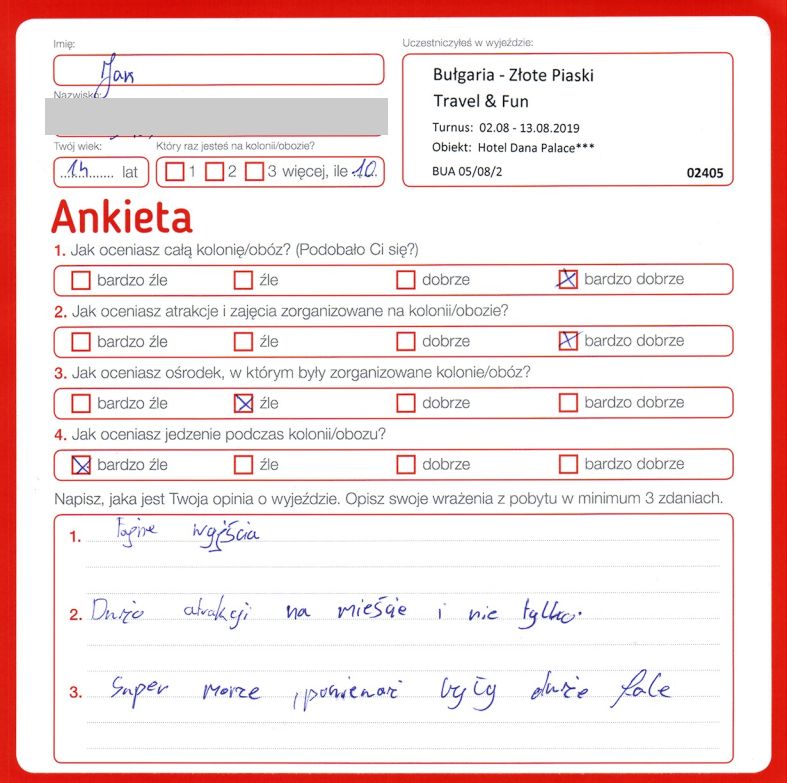 Imię:
Jan
Uczestniczyłeś w wyjeździe:
Bułgaria - Złote Piaski
Travel & Fun
Turnus: 02.08 - 13.08.2019
Obiekt: Hotel Dana Palace***
BUA 05/08/2
02405
Nazwisko:
Twój wiek:
14 lat
Który raz jesteś na kolonii/obozie?
1 2 3 więcej, ile 10
Ankieta
1. Jak oceniasz całą kolonię/obóz? (Podobało Ci się?)
bardzo źle źle dobrze bardzo dobrze
2. Jak oceniasz atrakcje i zajęcia zorganizowane na kolonii/obozie?
bardzo źle źle dobrze bardzo dobrze
3. Jak oceniasz ośrodek, w którym były zorganizowane kolonie/obóz?
bardzo źle źle dobrze bardzo dobrze
4. Jak oceniasz jedzenie podczas kolonii/obozu?
bardzo źle źle dobrze bardzo dobrze
Napisz, jaka jest Twoja opinia o wyjeździe. Opisz swoje wrażenia z pobytu w minimum 3 zdaniach.
1. fajne wyjścia
2. Dużo atrakcji na mieście i nie tylko.
3. Super morze, ponieważ były duże fale